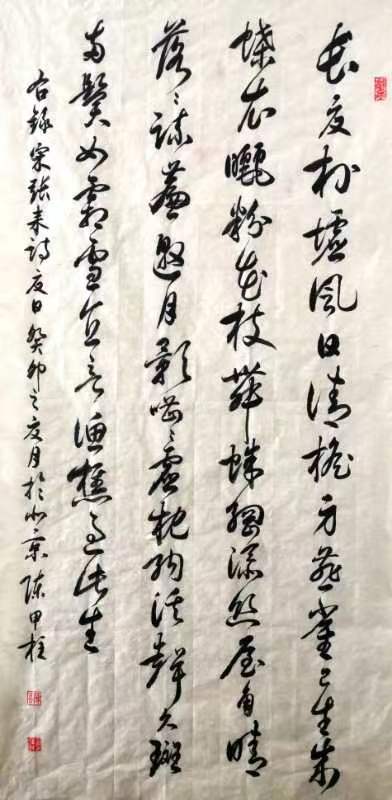 长夏村墟风日清檐牙燕雀已生成
蝶衣曬粉花枝舞蛛網添丝屋角晴
落々疏簾邀月影嘈々虚枕纳溪聲久斑
两鬓如霜雪直欲渔樵過此生
右録宋张耒詩夏日癸卯之夏月於北京陈甲柱